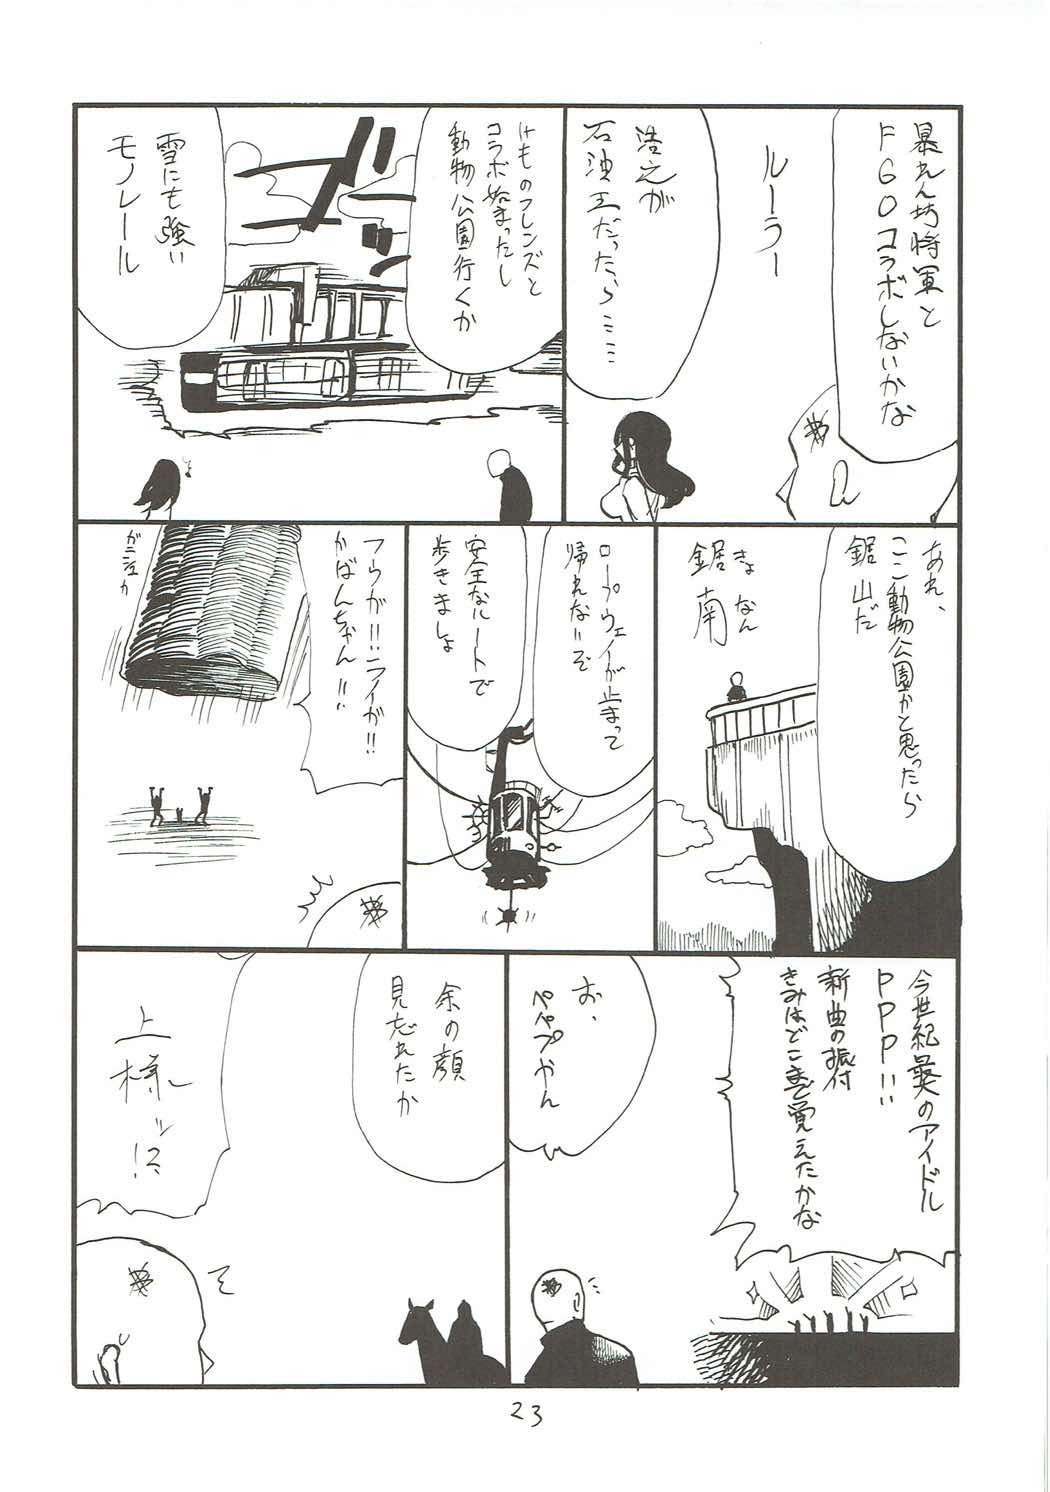 暴れん坊将軍と
FGOコラボしないかな
ルーラー
浩之が
石油王だったら……
けものフレンズと
コラボ始まったし
動物公園行くか
ドドン
雪にも強い
モノレール
あれ、
ここ動物公園かと思ったら
鋸山だ
きょなん
鋸南
ロープウェイが止まって
帰れないぞ
安全なルートで
歩きましょ
フウが!!ライが!!
かばんちゃん!!
ガニジュカ
今世紀最大のアイドル
PPP!!
新曲の振付
きみはどこまで覚えたかな
お、
ペパプやん
余の顔
見忘れたか
上様ッ!?
23